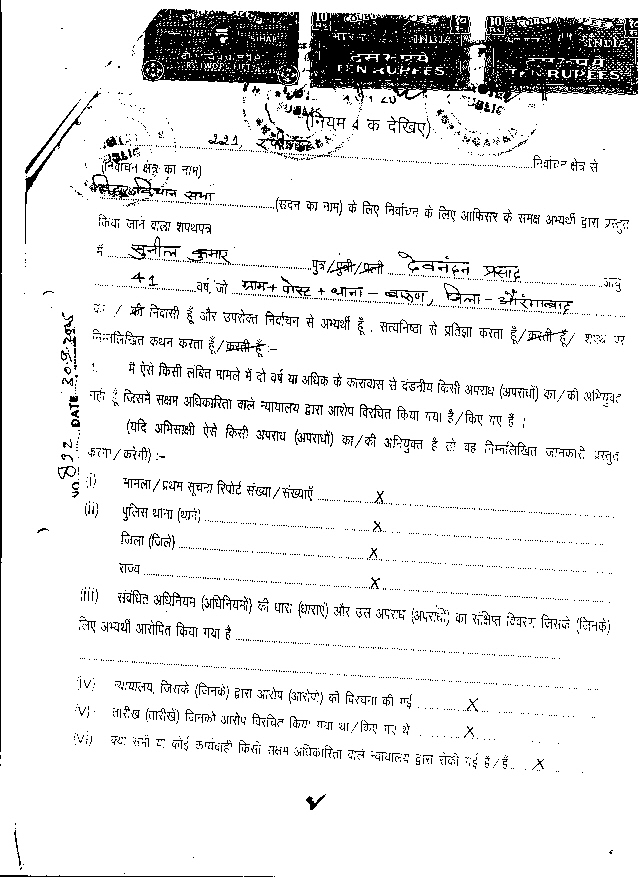 TEN RUPEES TEN RUPEES
(नियम 4 क देखिए)
221, निर्वाचन क्षेत्र से
(निर्वाचन क्षेत्र का नाम)
बिहार विधान सभा (सदन का नाम) के लिए निर्वाचन के लिए आफिसर के समक्ष अभ्यर्थी द्वारा प्रस्तुत
किया जाने वाला शपथपत्र
मैं सुनील कुमार पुत्र/पुत्री/पत्नी देवनंदन प्रसाद आयु
41 वर्ष, जो ग्राम+पोस्ट+थाना-बारुण, जिला-औरंगाबाद
का / की निवासी हूँ और उपरोक्त निर्वाचन से अभ्यर्थी हूँ, सत्यनिष्ठा से प्रतिज्ञा करता हूँ/करती हूँ/ शपथ पर
निम्नलिखित कथन करता हूँ/करती हूँ:-
1. मैं ऐसे किसी लंबित मामले में दो वर्ष या अधिक के कारावास से दंडनीय किसी अपराध (अपराधों) का/की अभियुक्त
नहीं हूँ जिसमें सक्षम अधिकारिता वाले न्यायालय द्वारा आरोप विरचित किया गया है/किए गए हैं।
(यदि अभिसाक्षी ऐसे किसी अपराध (अपराधों) का/की अभियुक्त है तो वह निम्नलिखित जानकारी प्रस्तुत
करेगा/करेगी):-
(i) मामला/प्रथम सूचना रिपोर्ट संख्या/संख्याएँ X
(ii) पुलिस थाना (थाने) X
जिला (जिले) X
राज्य X
(iii) संबंधित अधिनियम (अधिनियमों) की धारा (धाराएं) और उस अपराध (अपराधों) का संक्षिप्त विवरण जिसके (जिनके)
लिए अभ्यर्थी आरोपित किया गया है
(IV) न्यायालय, जिसके (जिनके) द्वारा आरोप (आरोपों) की विरचना की गई X
(V) तारीख (तारीखें) जिनको आरोप विरचित किया गया था/किए गए थे X
(Vi) क्या सभी या कोई कार्यवाही किसी सक्षम अधिकारिता वाले न्यायालय द्वारा रोकी गई है/हैं X
NO. 892 DATE 30.9.2005